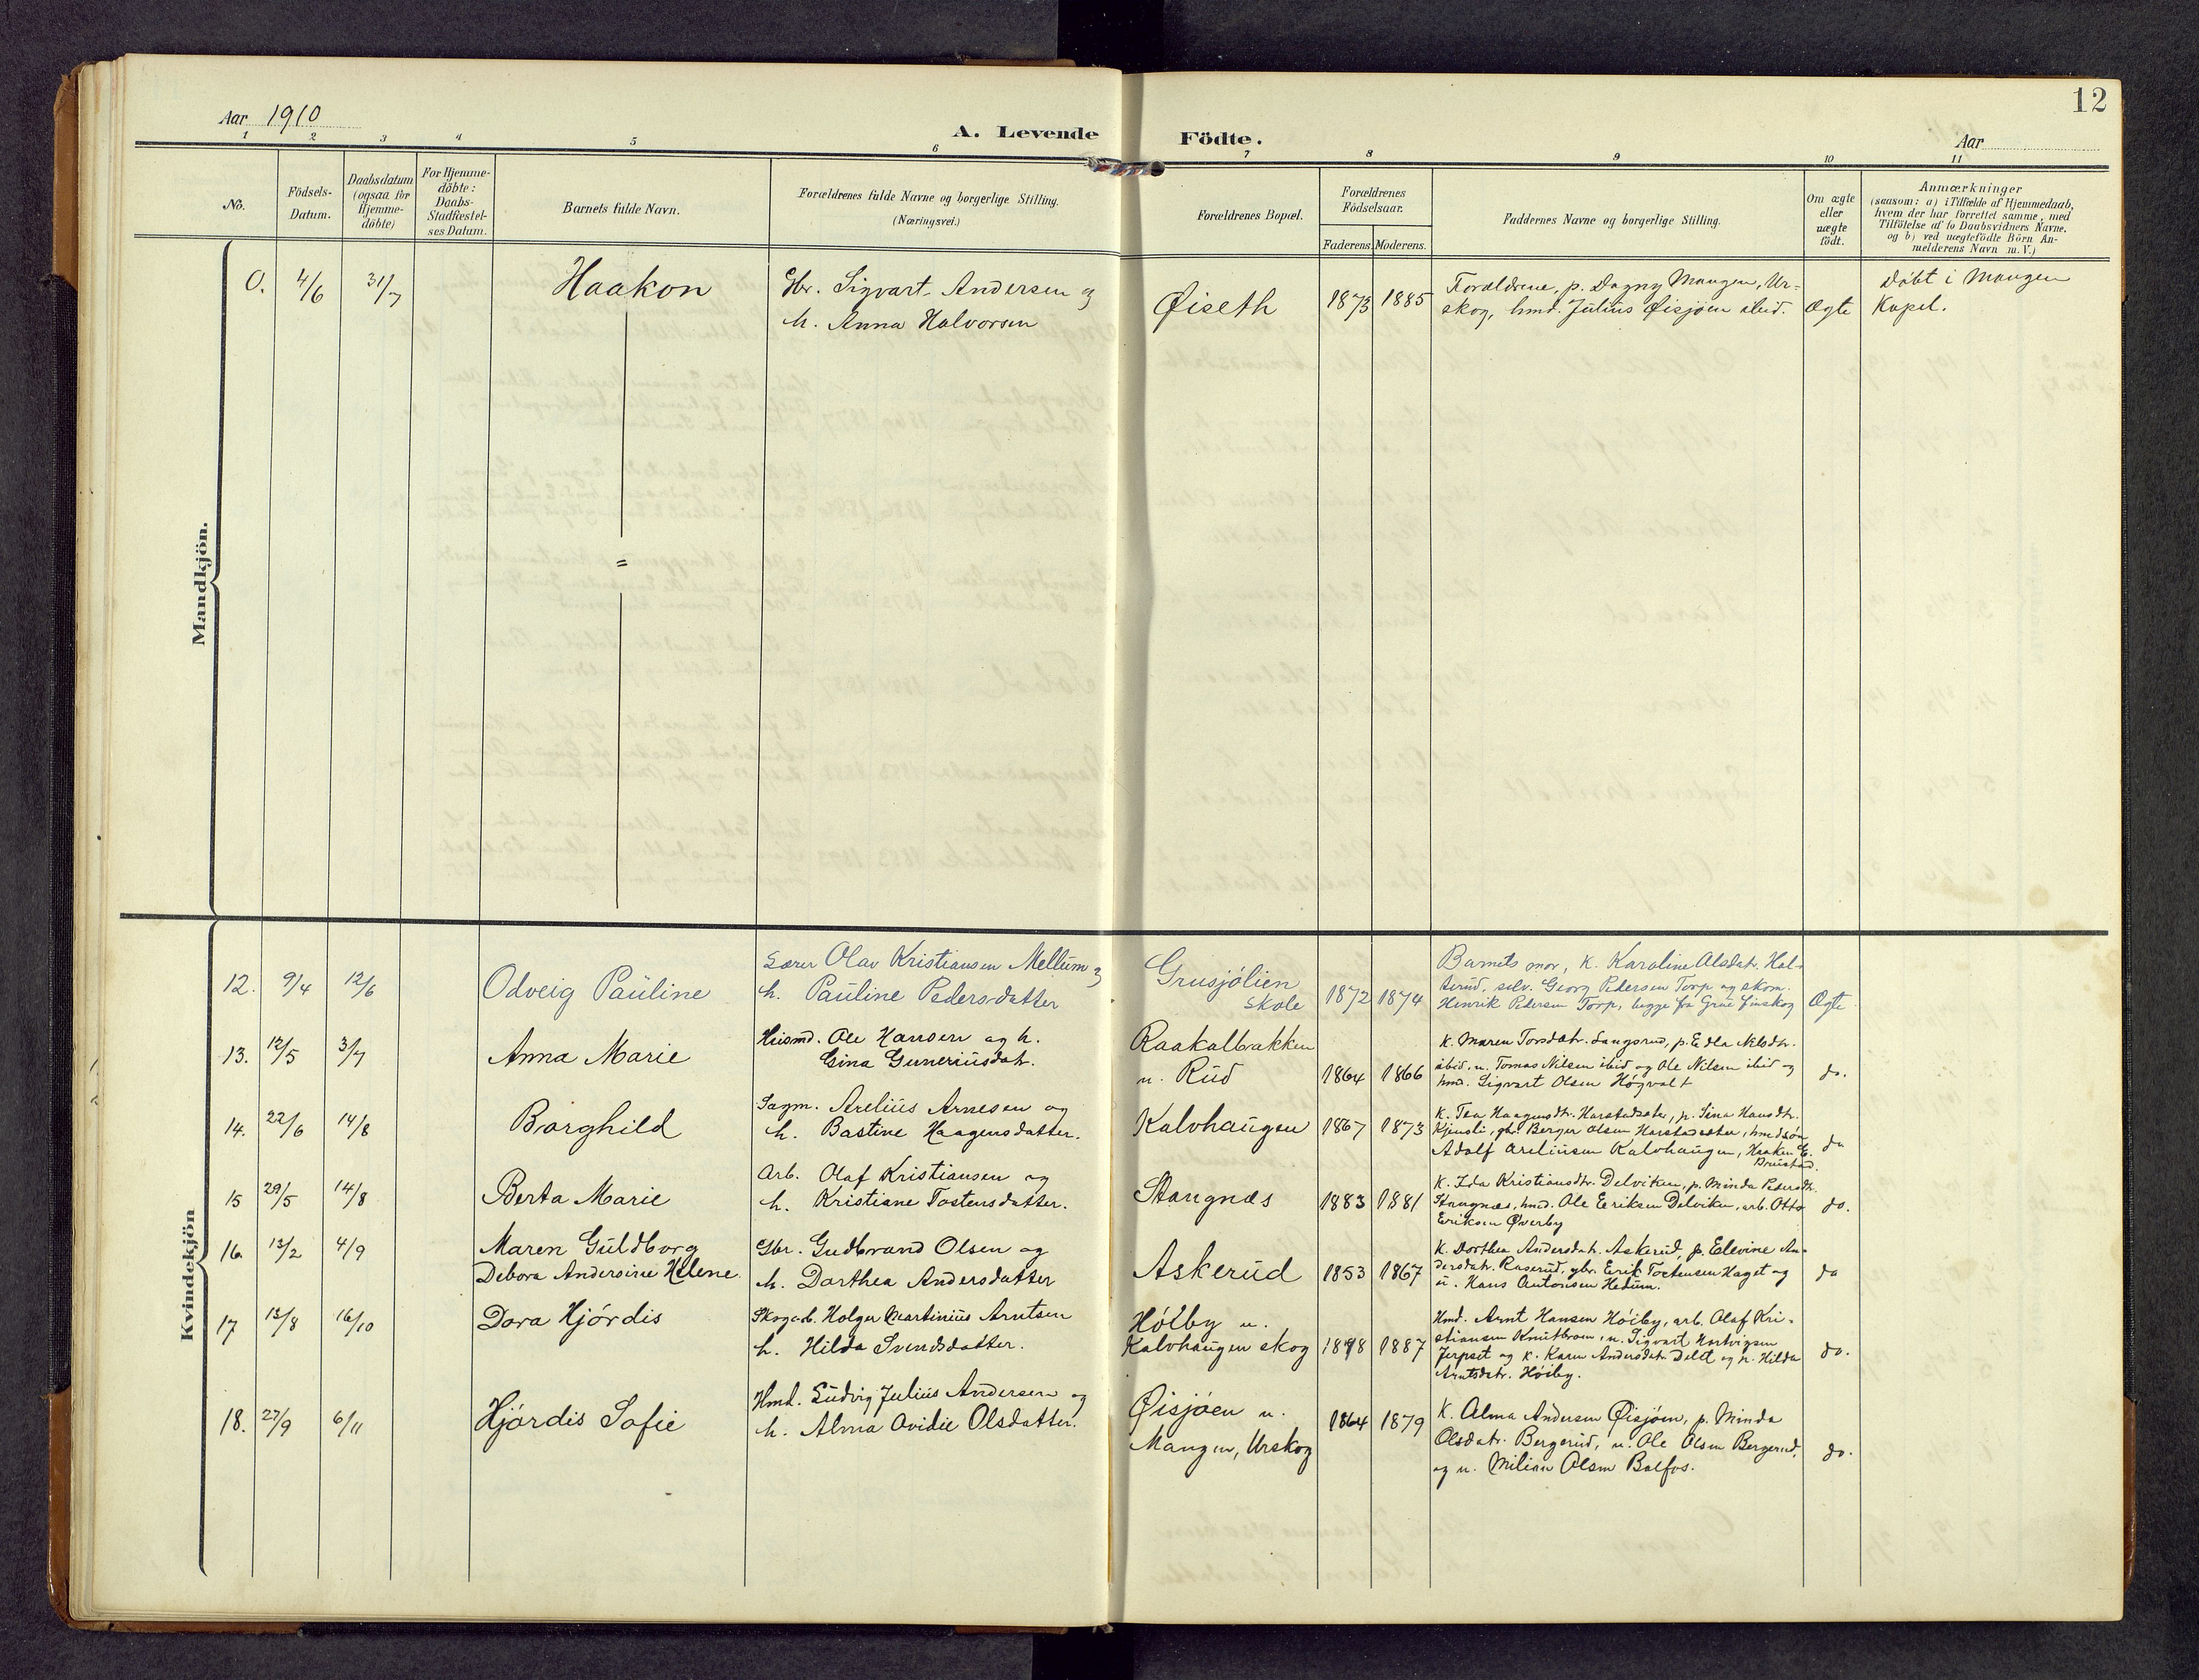 12
Aar 1910
A. Levende Födte.
Aar
1 2 3 4 5 6 7 8 9 10 11
No.
Födsels-
Datum.
Daabsdatum
(ogsaa for
Hjemme-
döbte)
For Hjemme-
döbte:
Daabs-
Stadfæstel-
ses Datum.
Barnets fulde Navn.
Forældrenes fulde Navne og borgerlige Stilling.
(Næringsvei.)
Forældrenes Bopæl.
Forældrenes
Födselsaar.
Faderens. Moderens.
Faddernes Navne og borgerlige Stilling.
Om ægte
eller
uægte
födt.
Anmærkninger
(saasom: a) i Tilfælde af Hjemmedaab,
hvem der har forrettet samme, med
Tilföielse af to Daabsvidners Navne.
og b) ved uægtefödte Börn An-
melderens Navn m. V.)
Mandkjön.
0. 4/6 31/7 Haakon
Gbr. Sigvart Andersen og
h. Anna Halvorsen
Øiseth 1873 1885
Forældrene, p. Dagny Mangen, Ur-
skog, hmd. Julius Øisjøen ibid.
Ægte
Døbt i Mangen
Kapel.
=
Kvindekjön
12. 9/4 12/6 Odveig Pauline
Lærer Olav Kristiansen Mellum og
h. Pauline Pedersdatter
Grusjölien
Skole
1872 1874
Barnets mor, K. Karoline Olsdatr. Hal-
terud, selv. Georg Pedersen Torp og skom.
Henrik Pedersen Torp, begge fra Grue Finskog
Ægte
13. 12/5 3/7 Anna Marie
Husmd. Ole Hansen og h.
Gina Guneriusdatr.
Raakalbakken
u. Rud
1864 1866
K. Maren Torsdatr. Langsrud, p. Edla Nilsdtr.
ibid, u. Tomas Nilsen ibid og Ole Nilsen ibid og
hmd. Sigvart Olsen Høgvalt
do.
14. 22/6 14/8 Borghild
Sagm. Arelius Arnesen og
h. Bastine Haagensdatter.
Kalvhaugen 1867 1873
K. Tea Haagensdtr. Harstadsæter, p. Sina Hansdtr.
Kjensli, gbr. Berger Olsen Harstadsæter, hmdsøn
Adolf Areliusen Kalvhaugen, Haaken E.
Bruustad.
do
15 29/5 14/8 Berta Marie
Arb. Olaf Kristiansen og
h. Kristiane Tostensdatter.
Stangnæs 1883 1881
K. Ida Kristiansdtr. Delviken, p. Minda Pedersdtr.
Stangnæs, hmd. Ole Eriksen Delviken, arb. Otto
Eriksen Øverby
do.
16. 13/2 4/9 Maren Guldborg
Debora Andersine Helene.
Gbr. Gudbrand Olsen og
h. Dorthea Andersdatter
Askerud 1853 1867
K. Dorthea Andersdatr. Askerud, p. Elevine An-
dersdatr. Raserud, gbr. Erik Tostensen Haget og
u. Hans Antonsen Hedum.
do
17 13/8 16/10 Dora Hjördis
Skogarb. Holger Martinius Arntsen
h. Hilda Svendsdatter.
Höiby u.
Kalvhaugen skog
1878 1887
Hmd. Arnt Hansen Höiby, arb. Olaf Kri-
stiansen Knutbroen, u. Sigvart Hartvigsen
Jerpset og K. Karen Andersdatr. Delet og p. Hilda
Arntsdatr. Höiby.
do.
18. 27/9 6/11 Hjördis Sofie
Hmd. Ludvig Julius Andersen og
h. Alma Ovidie Olsdatter.
Øisjøen u.
Mangen, Urskog
1864 1879
K. Alma Andersen Øisjøen, p. Minda
Olsdatr. Bergerud, u. Ole Olsen Bergerud,
og u. Milian Olsen Bolfos.
do.